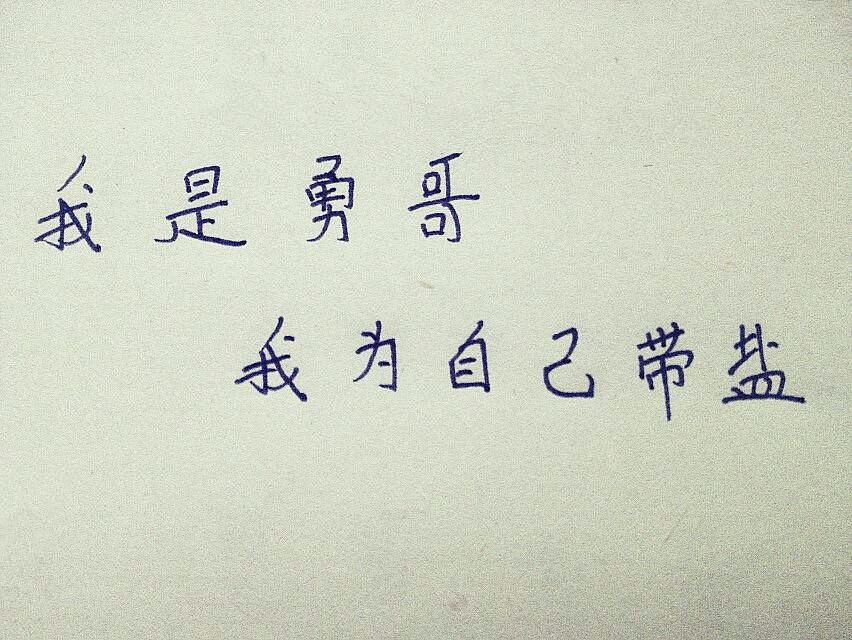 我是勇哥
我为自己带盐